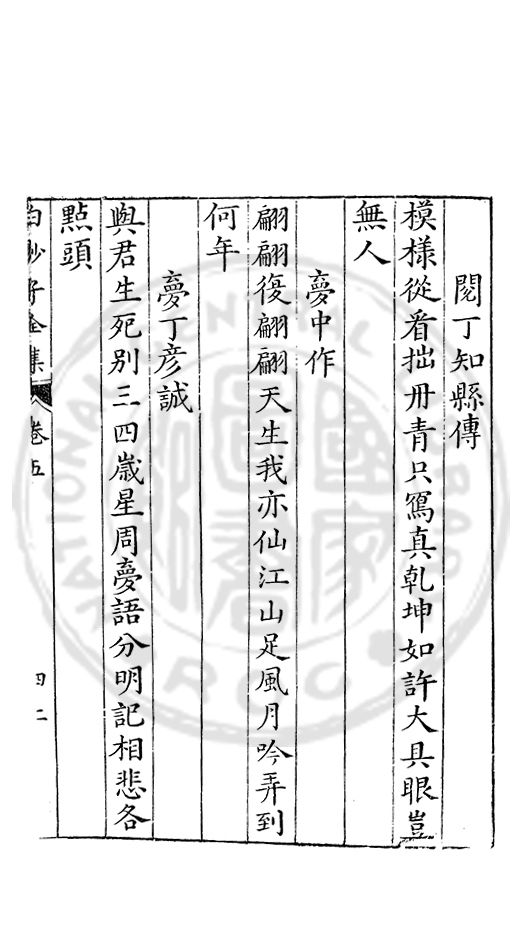 閱丁知縣傳
模樣從看拙丹青只寫真乾坤如許大具眼豈
無人
夢中作
翩翩復翩翩天生我亦仙江山足風月吟弄到
何年
夢丁彥誠
與君生死別三四歲星周夢語分明記相悲各
點頭
白沙子全集
卷五
四二